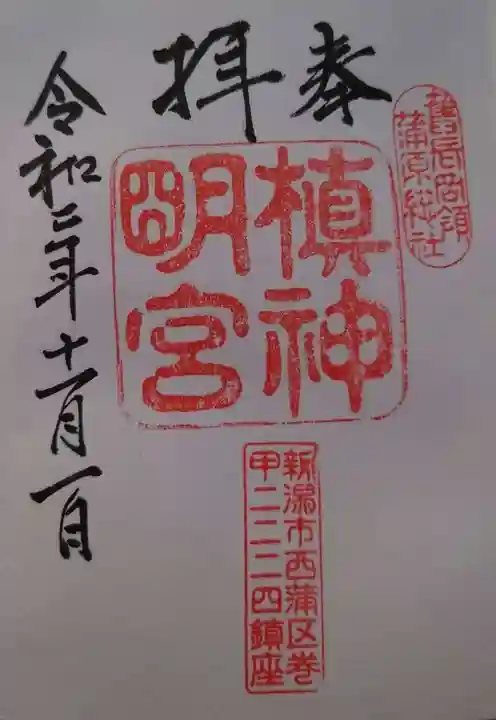 舊長岡領
蒲原総社
奉拝
槙神
明宮
新潟市西蒲区巻
甲二二二四鎮座
令和二年十一月一日